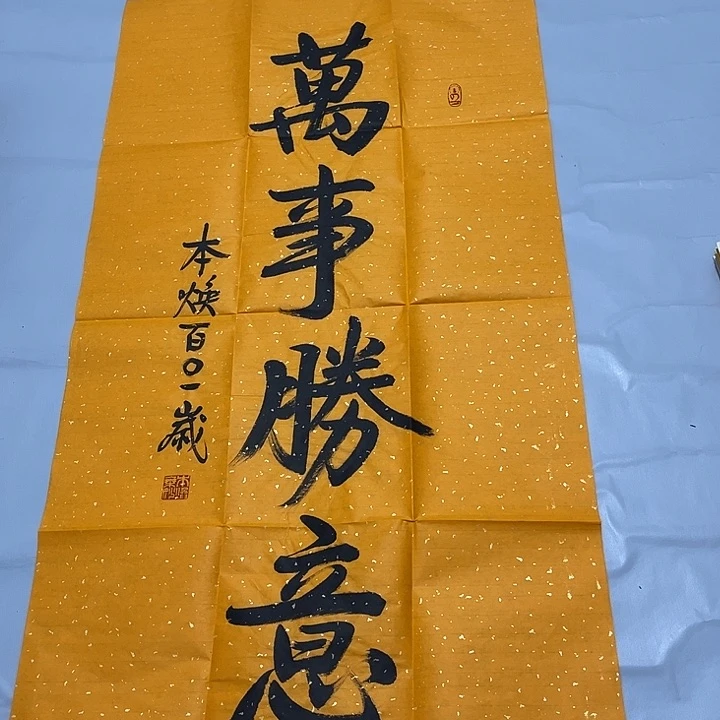 萬事勝意
本煥百〇一歲